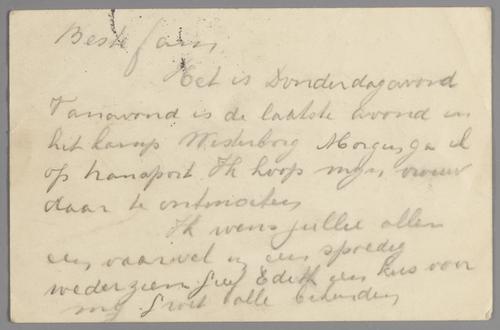 Beste fam,
Het is Donderdagavond
Vanavond is de laatste avond in
het kamp Westerborg Morgen ga ik
op transport. Ik hoop mijn vrouw
daar te ontmoeten
Ik wens jullie allen
een vaarwel en een spoedig
wederzien Geef Edith een kus voor
mij Groet alle bekenden